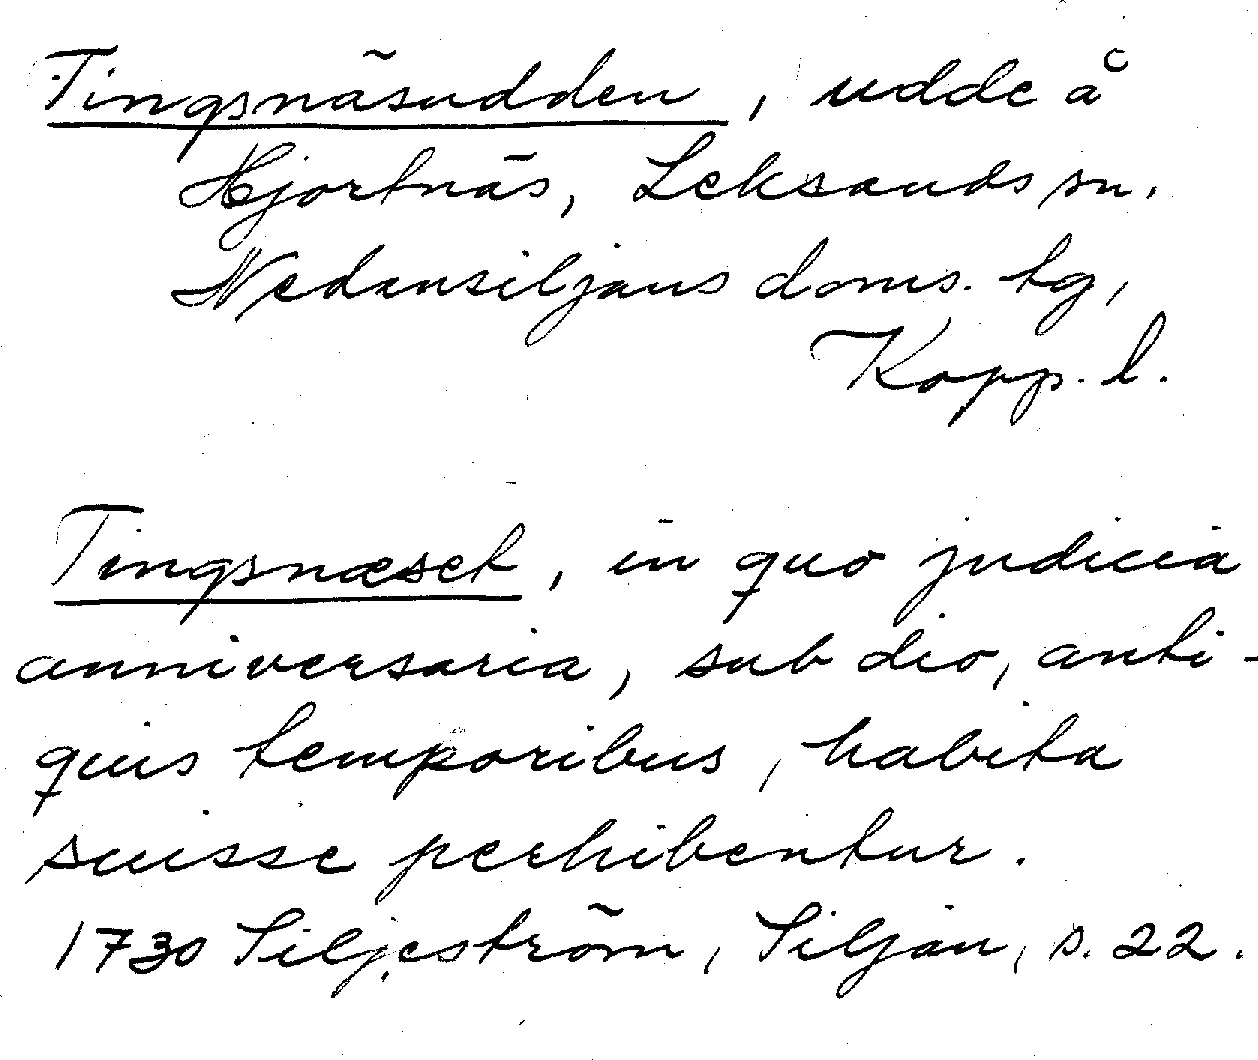 Tingsnäsudden, udde å
Hjortnäs, Leksands sn.
Nedansiljans doms. tg,
Kopp. l.
Tingsnæset, in quo judicia
anniversaria, sub dio, anti-
quis temporibus, habita
suisse perhibentur.
1730 Siljeström, Siljan, s. 22.